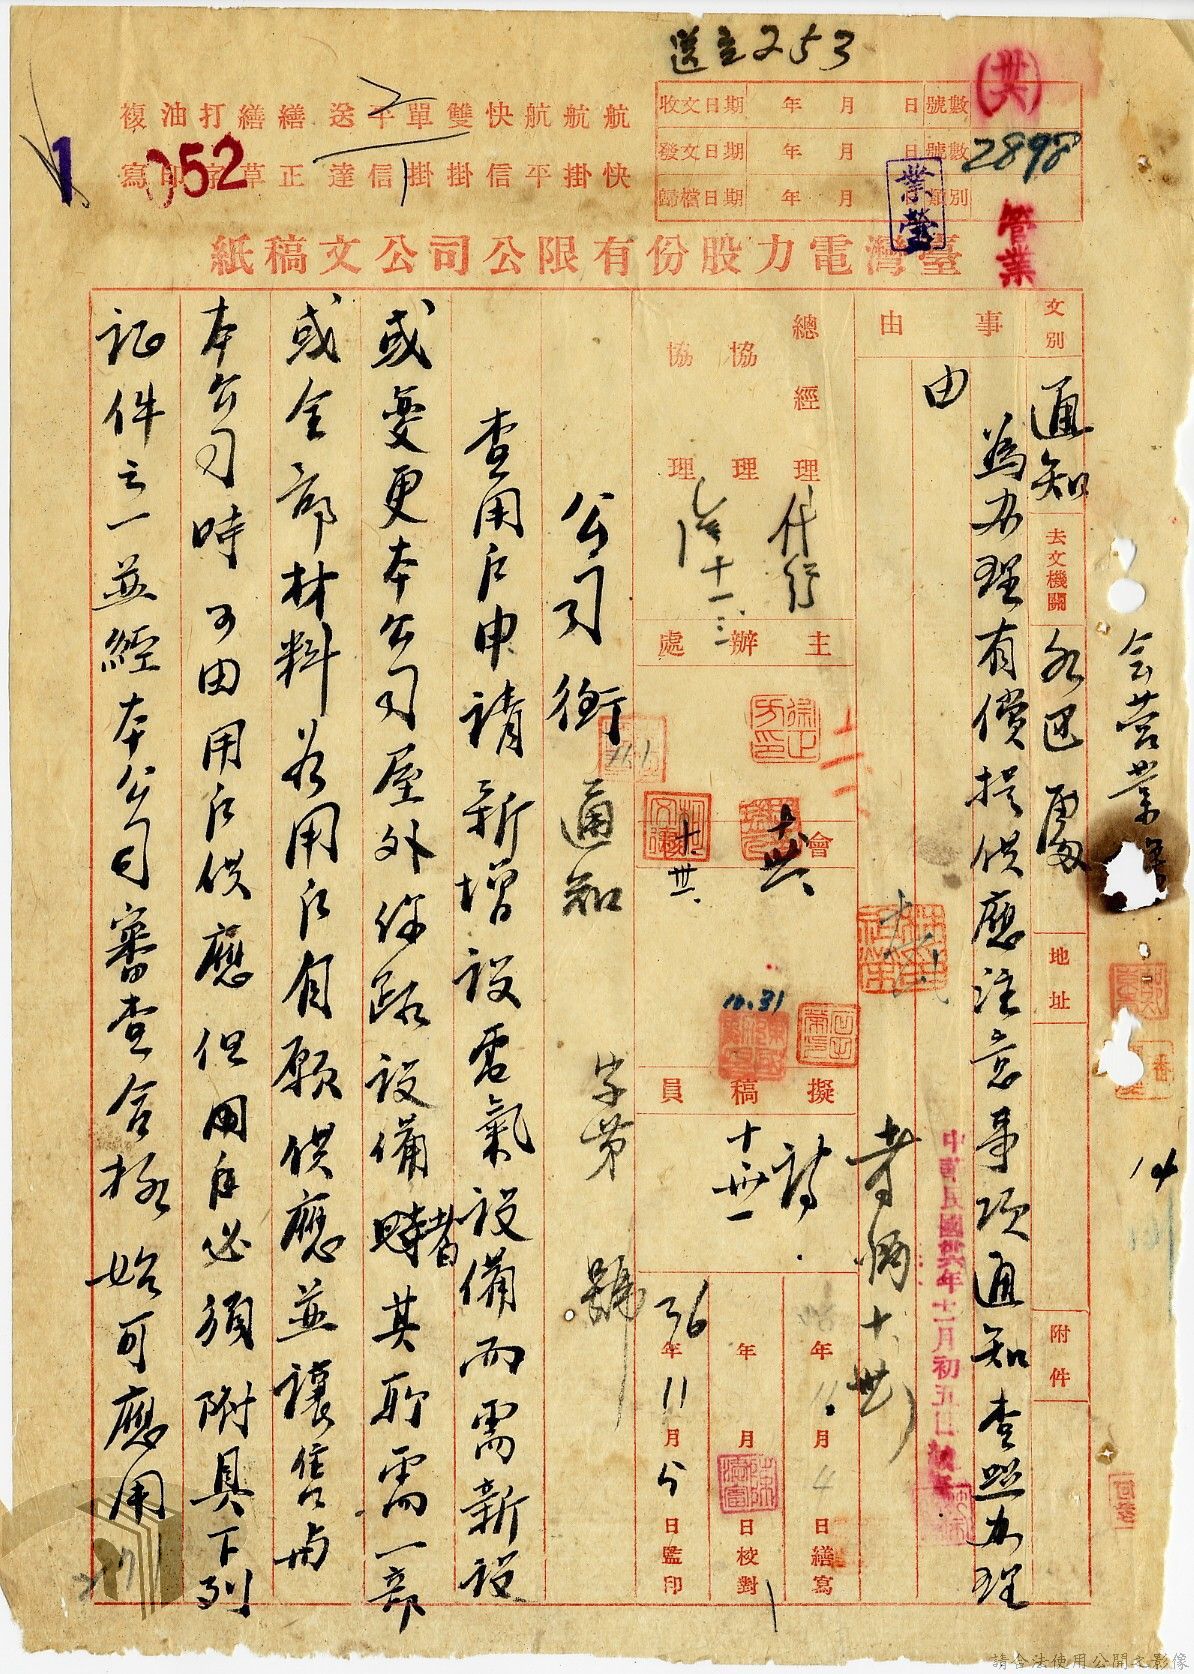 送 253
收文日期 年 月 日 號數
發文日期 年 月 日 號數 2898
歸檔日期 年 月 日 類別
營業
業營
航 航 航 快 雙 單 平 送 繕 繕 打 油 複
快 掛 平 信 掛 掛 信 達 正 草 字 印 寫
1
052
臺灣電力股份有限公司公文稿紙
会营業
文別 通知 去文機關 各區處 地址 附件
事由
為办理有償提供應注意事項通知查照办理
由
中華民國卅六年十一月初五日
總經理
協理
協理
主辦處
會
擬稿員
10.31
年 月 4 日繕寫
年 月 日校對
36年11月5日監印
公司銜 通知 字第 號
查用戶申請新增設電氣設備而需新設
或變更本公司屋外線路設備者其所需一部
或全部材料為用戶自願供應並讓售與
本公司時可由用戶供應但用戶必須附具下列
証件之一並經本公司審查合格始可應用
請合法使用公開之影像